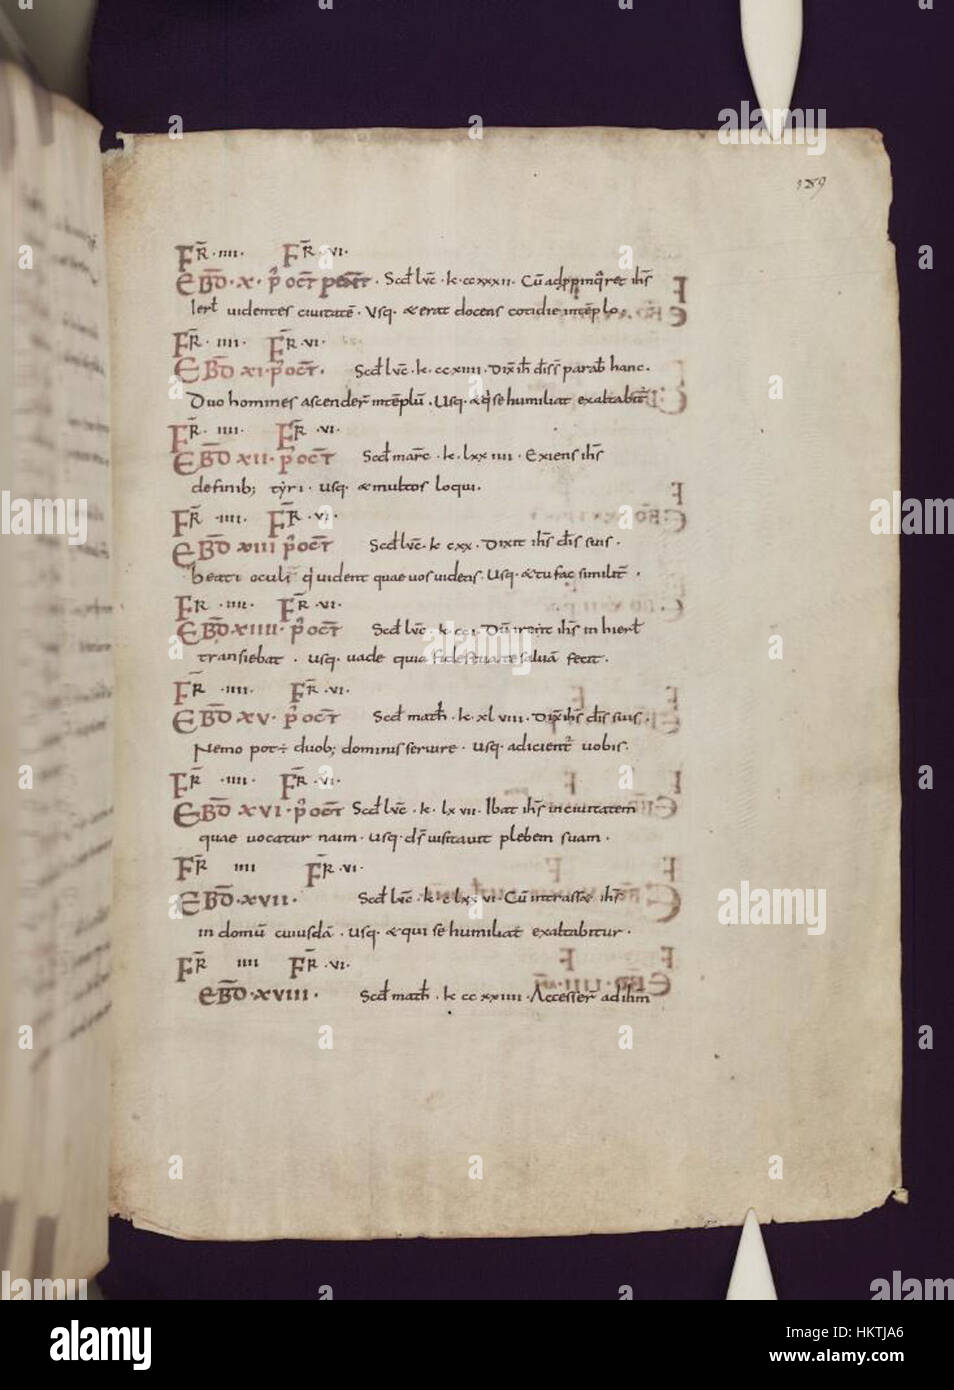 189
FR̄ · IIII · FR̄ · VI ·
EBD̄ · X · P̊ OCT̄ PENT̄ · Scd̄ lūc · k · ccxxxii · Cū adppinq̄ret ih̄s
ierł uidentes ciuitatē · Usq · & erat docens cotidie intēplo ·
FR̄ · IIII · FR̄ · VI ·
EBD̄ XI · P̊ OCT̄ · Scd̄ lūc · k · ccxiiii · dix̄ ih̄ disī parab̄ hanc ·
Duo homines ascender̄ intēplū · Usq · & q̄ se humiliat exaltabit̄
FR̄ · IIII · FR̄ · VI ·
EBD̄ XII · P̊ OCT̄ Scd̄ marc̄ · k · lxxiiii · Exiens ih̄s
de finib; tyri · usq · & mutos loqui ·
FR̄ · IIII · FR̄ · VI ·
EBD̄ XIII P̊ OCT̄ Scd̄ lūc · k cxx · Dixit ih̄s dis̄ suis ·
beati oculi q̄ uident quae uos uidetis · Usq · & tu fac similit̄ ·
FR · IIII · FR̄ · VI ·
EBD̄ XIIII · P̊ OCT̄ Scd̄ lūc · k · cci · Dū iret ih̄s in hierł
transiebat · usq · uade quia fides tua te saluā fecit ·
FR̄ · IIII · FR̄ · VI ·
EBD̄ XV · P̊ OCT̄ Scd̄ math̄ · k · xlviii · dix̄ ih̄s dis̄ suis ·
Nemo pot÷ duob; dominis seruire · usq · adicient̄ uobis ·
FR̄ · IIII · FR̄ · VI ·
EBD̄ XVI · P̊ OCT̄ Scd̄ lūc · k · lxvii · Ibat ih̄s in ciuitatem
quae uocatur naim · usq · ds̄ uisitauit plebem suam ·
FR̄ IIII FR̄ · VI ·
EBD̄ · XVII · Scd̄ lūc · k · clxxvi · Cū intrass& ih̄s
in domū cuiusdā · usq · & qui se humiliat exaltabitur ·
FR̄ IIII FR̄ · VI ·
EBD̄ · XVIII · Scd̄ math̄ · k ccxxiiii · Accesser̄ ad ih̄m
alamy
Image ID: HKTJA6
www.alamy.com